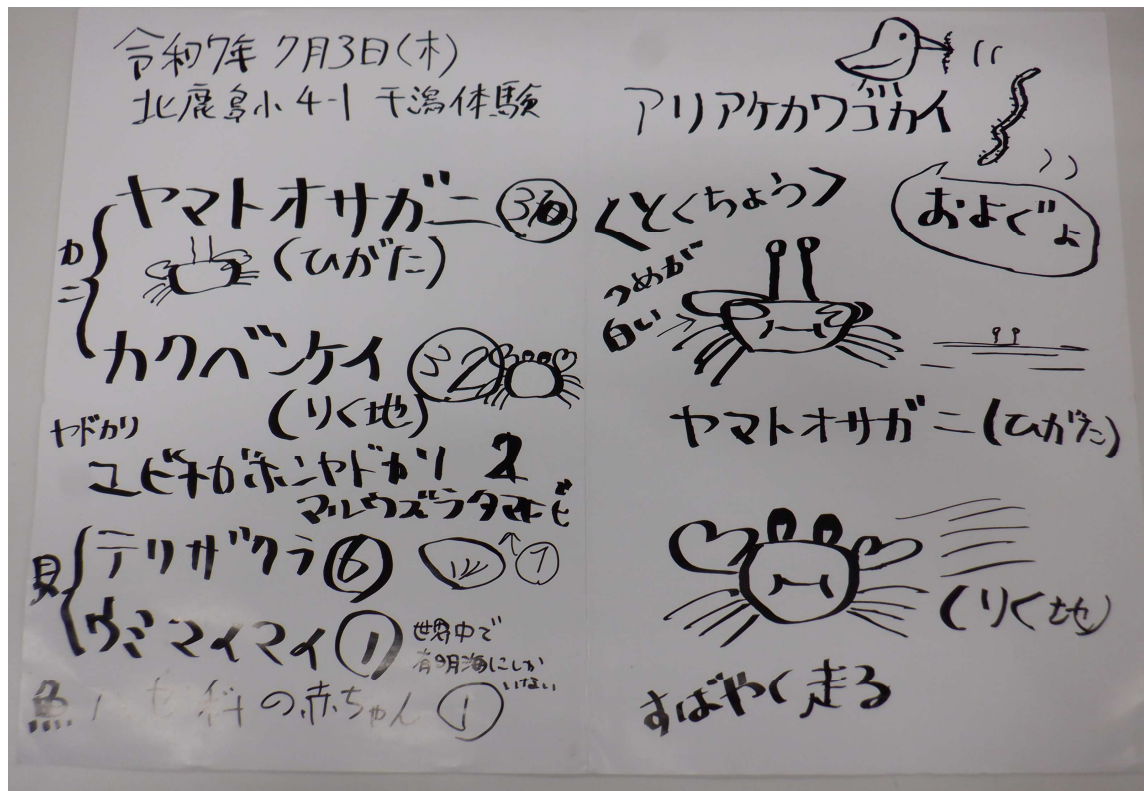 令和7年 7月3日(木)
北鹿島小4-1 干潟体験
カニ
ヤマトオサガニ
(ひがた)
カクベンケイ
(りく地)
ヤドカリ
ユビナガホンヤドカリ 2
マルウズラタマキビ
1
貝
テリザクラ 6
ウミマイマイ 1
世界中で
有明海にしか
いない
魚 ハゼ科の赤ちゃん 1
アリアケカワゴカイ
およぐよ
<とくちょう>
つめが
白い
ヤマトオサガニ(ひがた)
(りく地)
すばやく走る